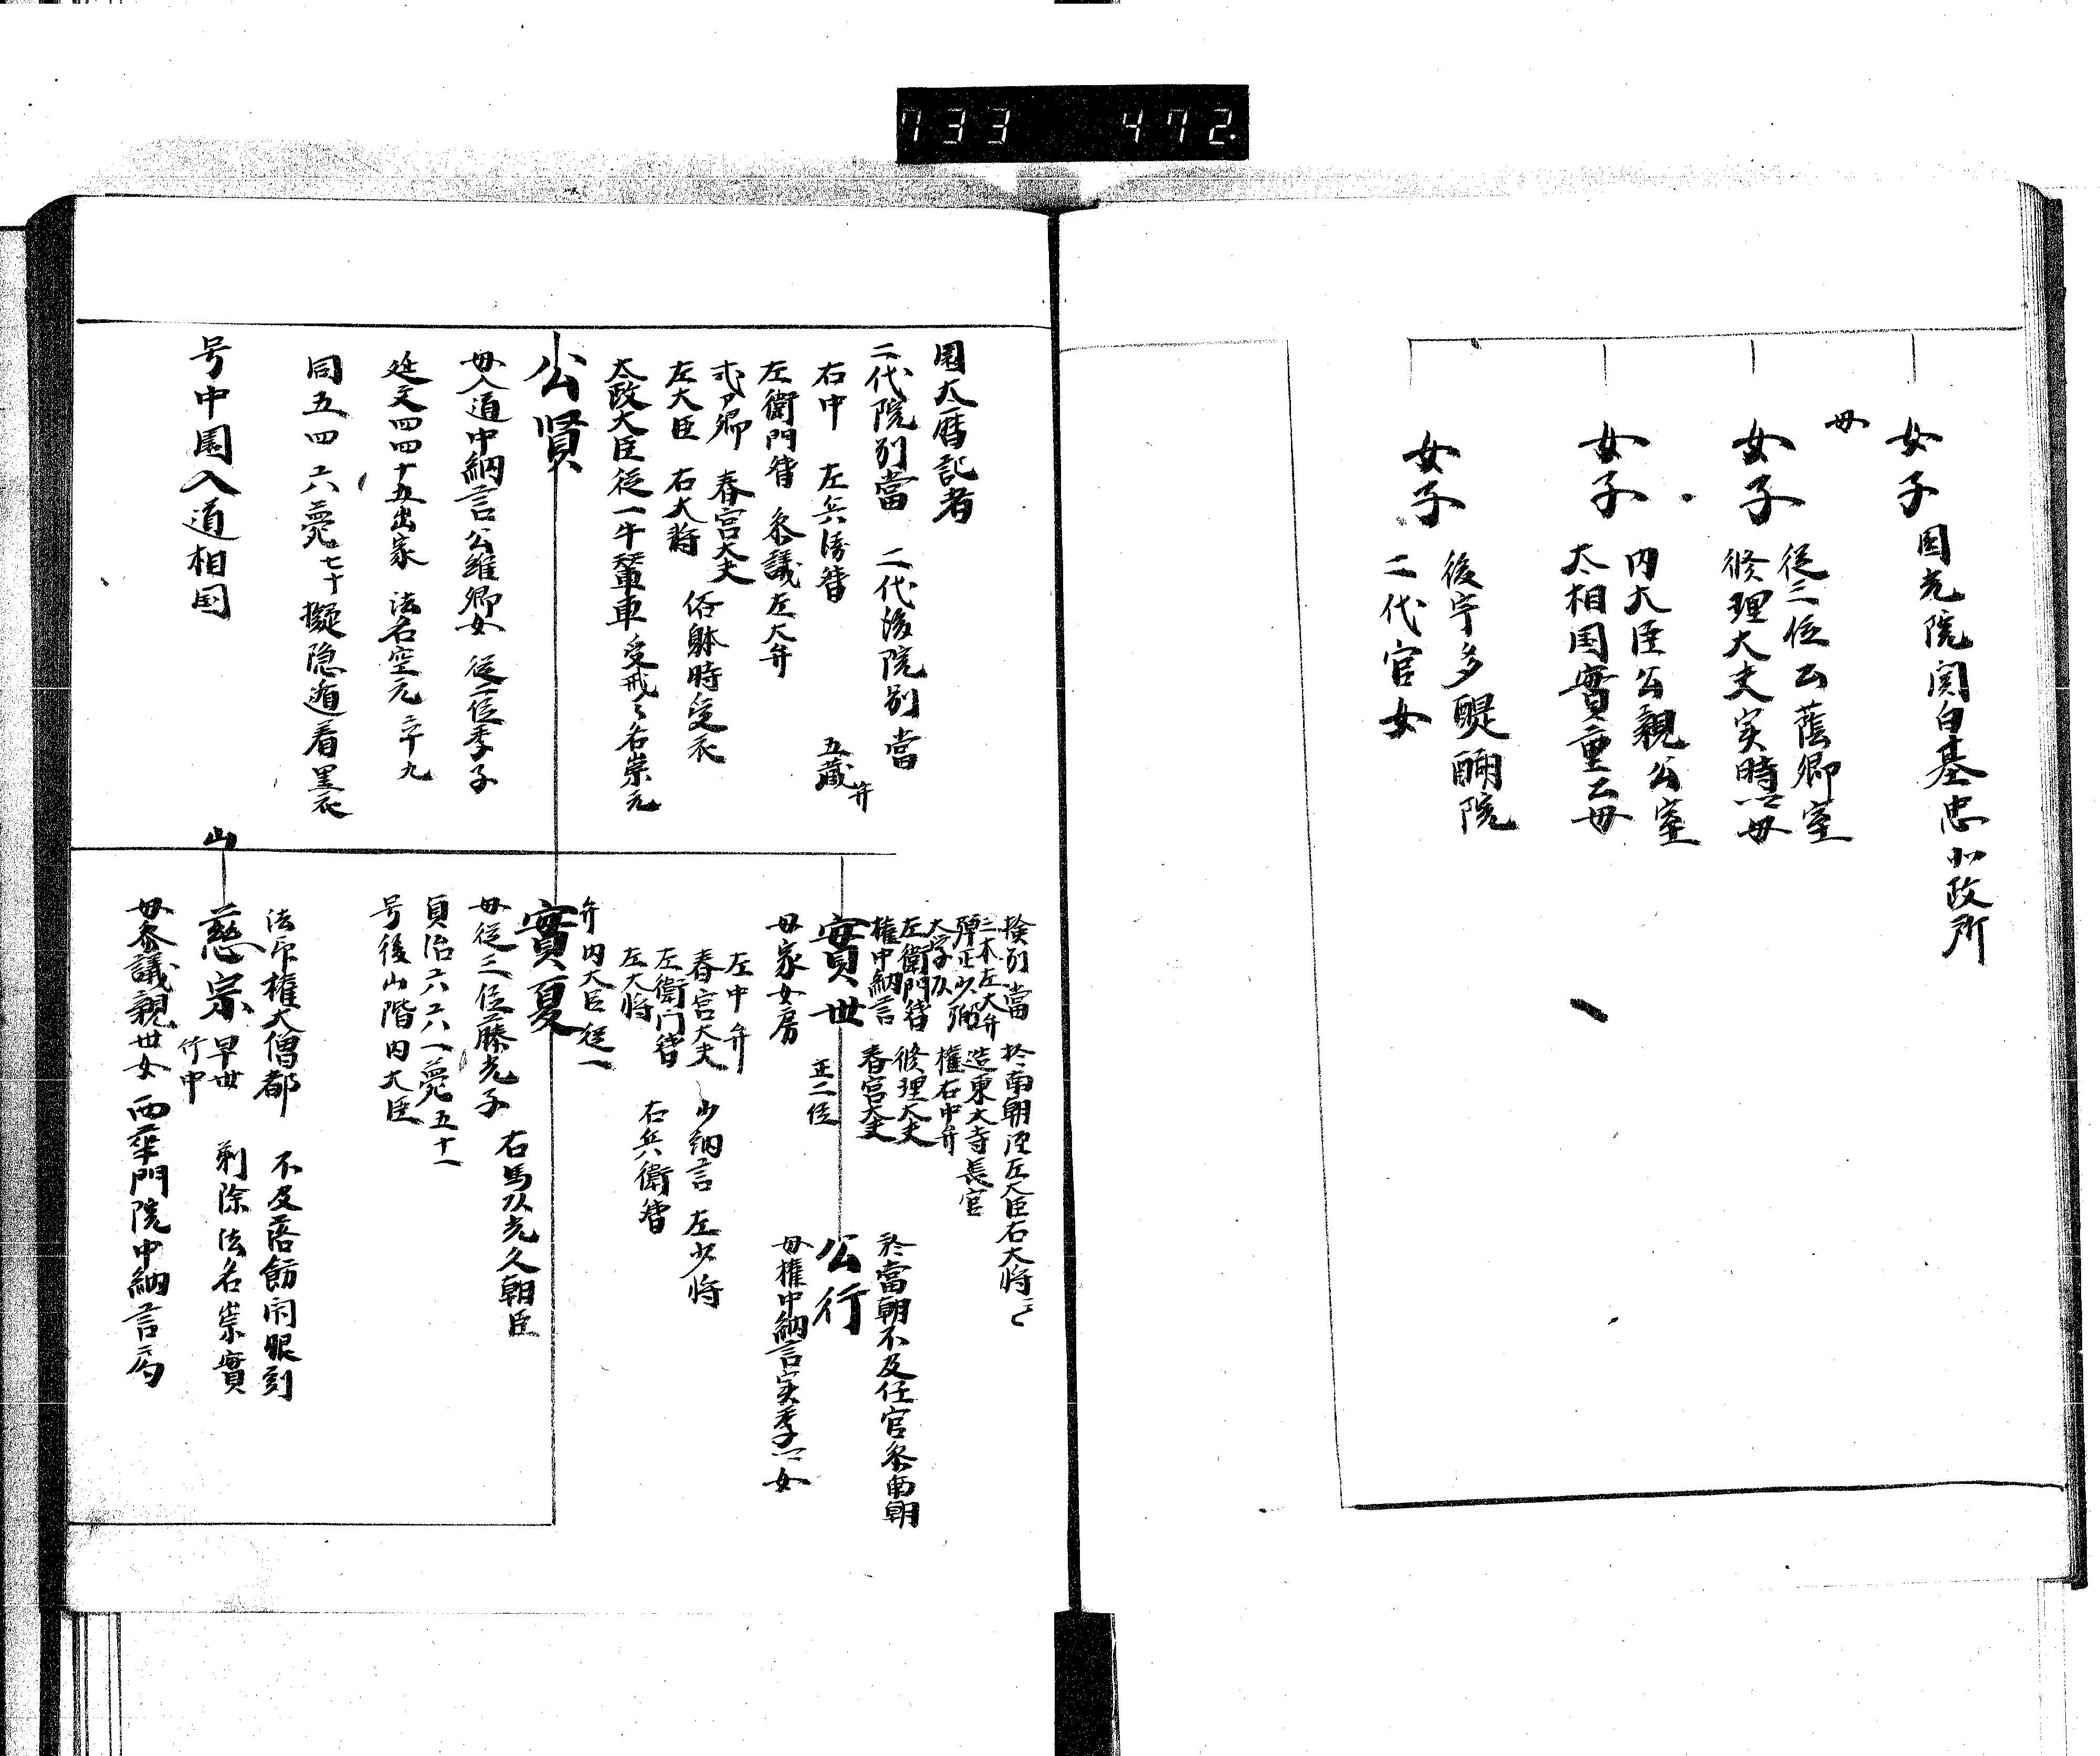 733 472
女子
円光院関白基忠北政所
母
女子
従三位公蔭卿室
修理大夫実時公母
女子
内大臣公親公室
太相国實重公母
女子
後宇多醍醐院
二代官女
園太暦記者
二代院別當 二代後院別當
右中弁 左兵衛督 五蔵
左衛門督 参議左大弁
式卿 春宮大夫
左大臣 右大将 俗躰時受衣
太政大臣従一牛輦車 受戒々名崇元
公賢
母入道中納言公雄卿女 従二位季子
延文四四十五出家 法名空元 六十九
同五四六薨七十 擬隠遁着黒衣
号中園入道相国
検別當 於南朝任左大臣右大将云々
三木左大弁
弾正少弼 造東大寺長官
大学 権右中弁
左衛門督 修理大夫
権中納言 春宮大夫
實世 正二位
母家女房
於當朝不及任官参南朝
公行
母権中納言実季公女
左中弁
春宮大夫 少納言 左少将
左衛門督
左大将 右兵衛督
弁内大臣従一
實夏
母従三位藤光子 右馬頭光久朝臣
貞治六六一薨五十一
号後山階内大臣
山
法印権大僧都 不及落飾閉眼刻
慈宗 早世 剃除法名崇實
竹中
母参議親世女 西華門院中納言局